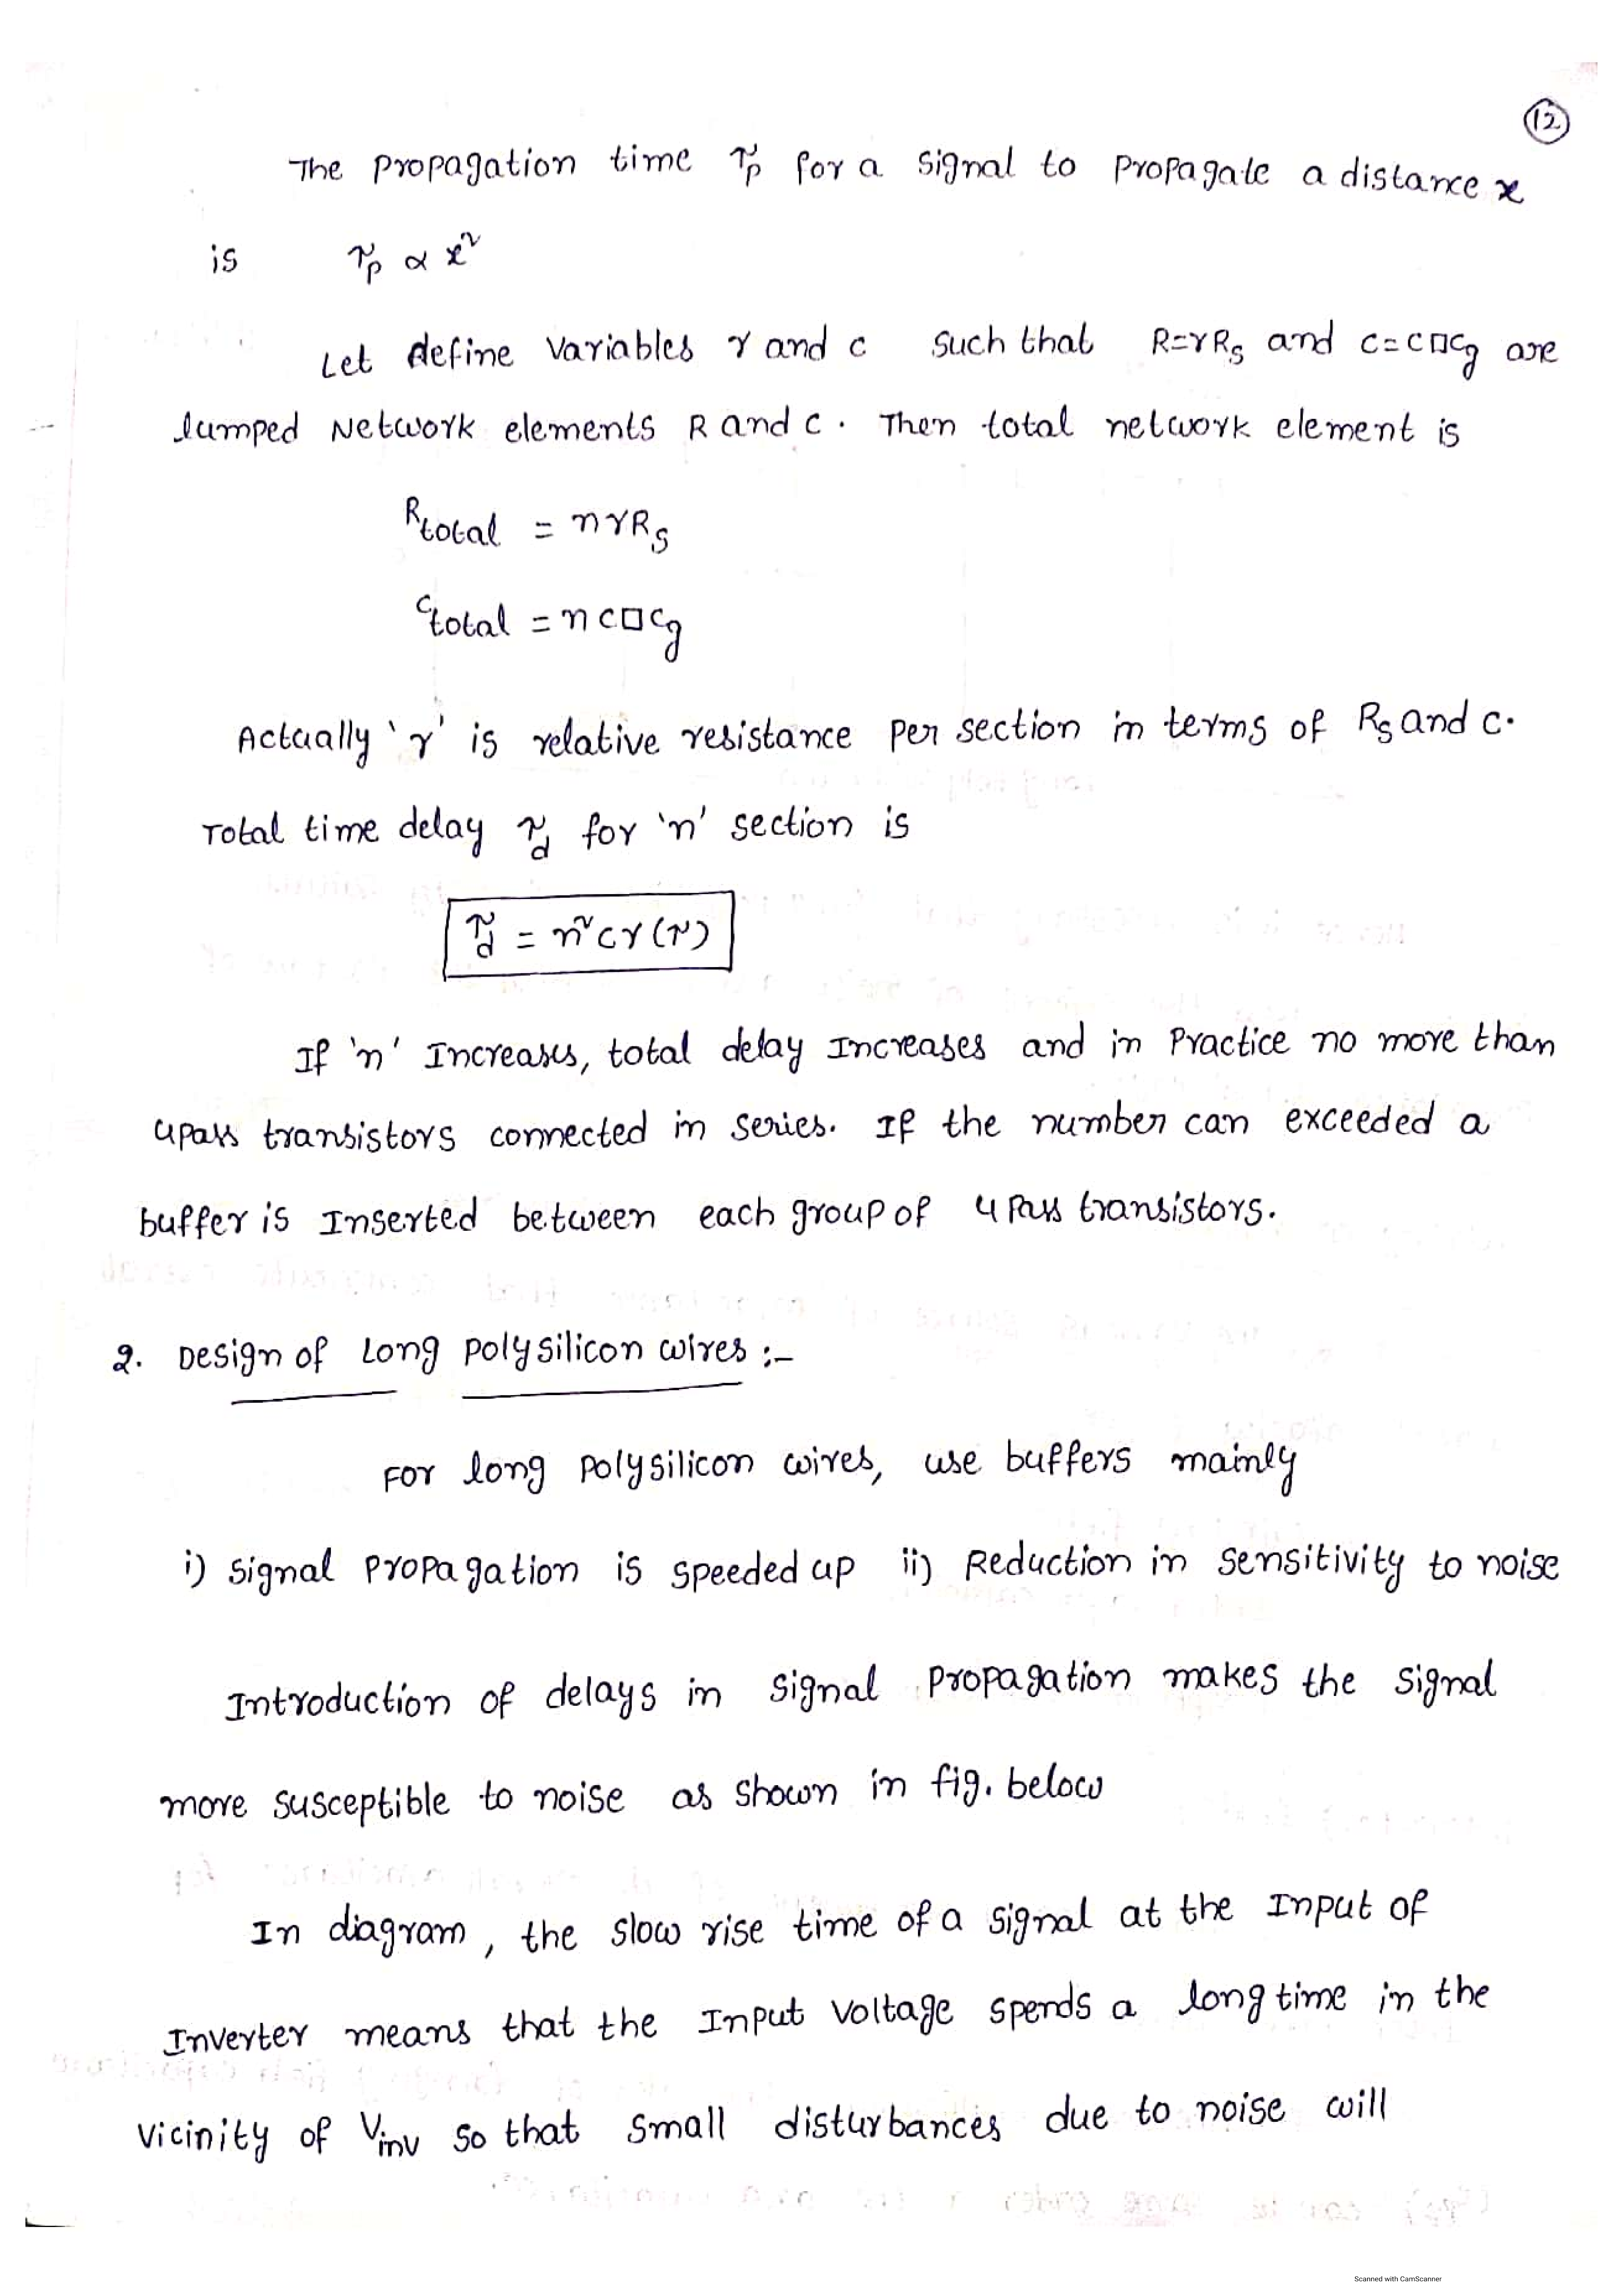 12
The propagation time τp for a signal to propagate a distance x
is τp ∝ x²
Let define variables r and c such that R=rRs and c=c□cg are
lumped Network elements R and c. Then total network element is
Rtotal = nrRs
ctotal = nc□cg
Actually 'r' is relative resistance per section in terms of Rs and c.
Total time delay τd for 'n' section is
τd = n²cr(τ)
If 'n' Increases, total delay Increases and in Practice no more than
4pass transistors connected in series. If the number can exceeded a
buffer is Inserted between each group of 4 Pass transistors.
2. Design of Long polysilicon wires :-
For long polysilicon wires, use buffers mainly
i) signal propagation is speeded up ii) Reduction in sensitivity to noise
Introduction of delays in signal propagation makes the signal
more susceptible to noise as shown in fig. below
In diagram, the slow rise time of a signal at the Input of
Inverter means that the Input voltage spends a long time in the
vicinity of Vinv so that small disturbances due to noise will
Scanned with CamScanner